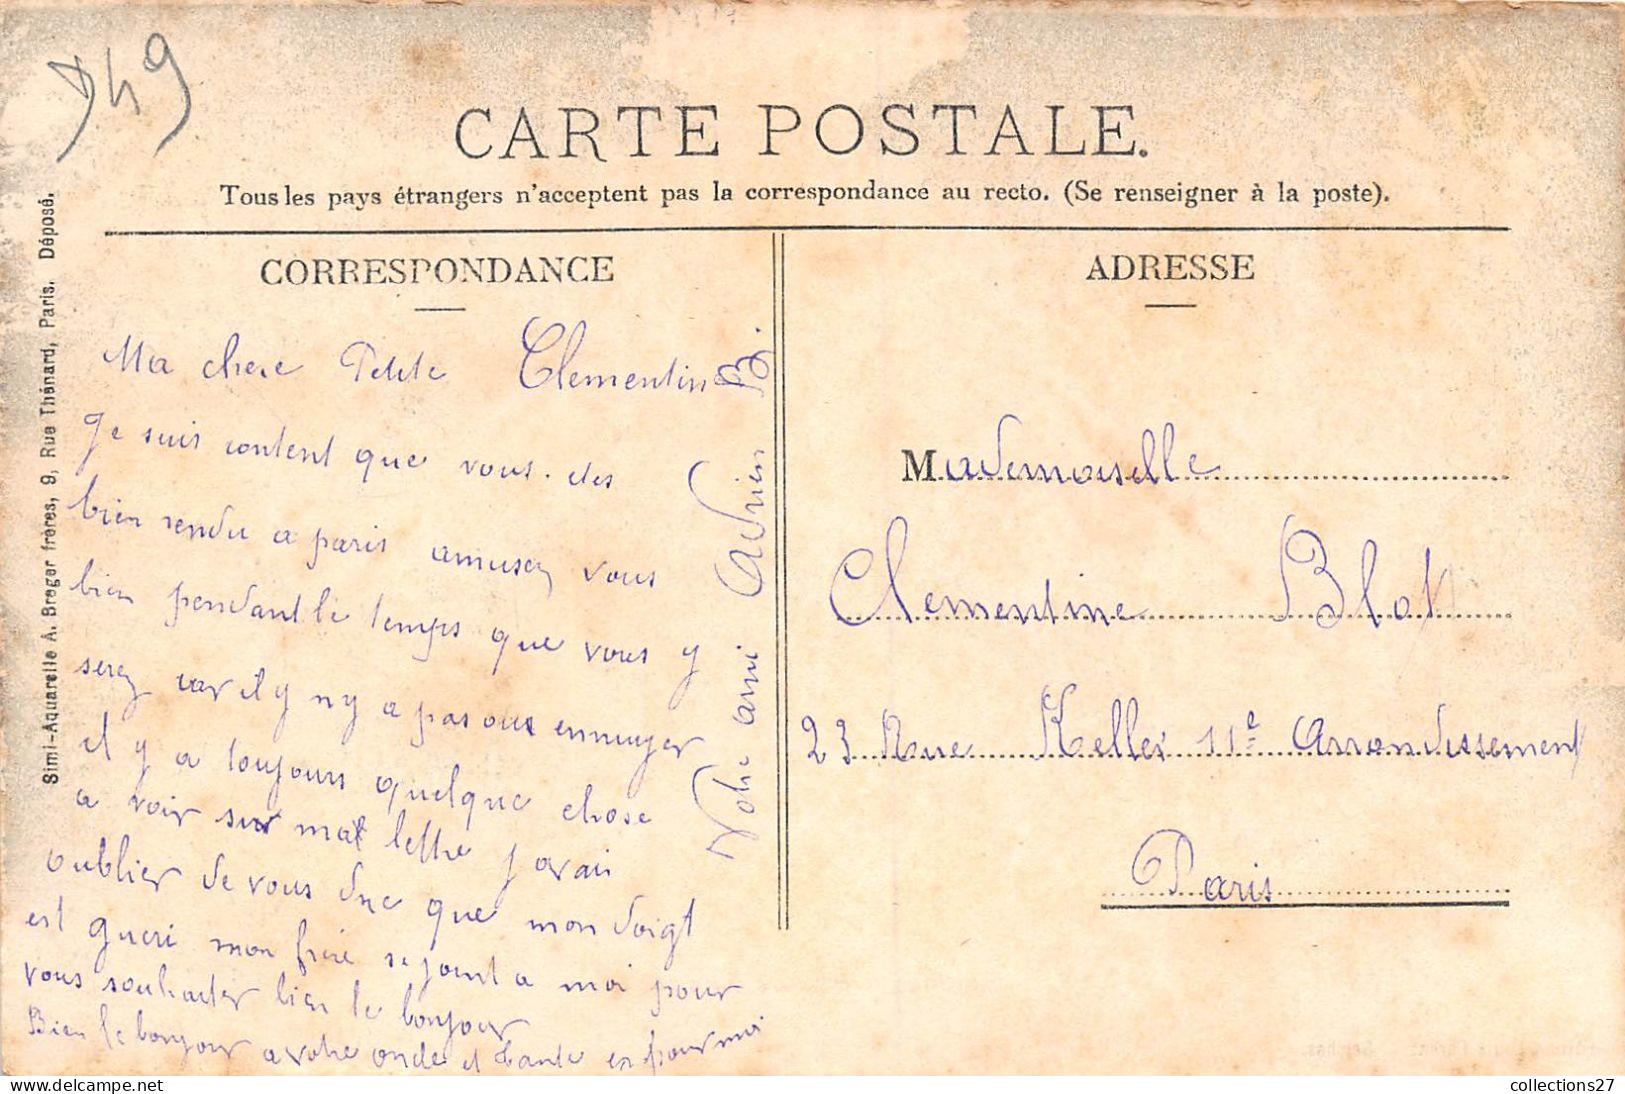 D49
CARTE POSTALE.
Tous les pays étrangers n'acceptent pas la correspondance au recto. (Se renseigner à la poste).
Simi-Aquarelle A. Breger frères, 9, Rue Thénard, Paris. Déposé.
CORRESPONDANCE
Ma chere Petite Clementine
Je suis content que vous. etes
bien rendu a paris amusez vous
bien pendant le temps que vous y
serez car il y n'y a pas ous ennuyer
il y a toujours quelque chose
a voir sur ma lettre j'avais
oublier de vous dire que mon doigt
est gueri mon frère se joint a moi pour
vous souhaiter bien le bonjour
Bien le bonjour a votre oncle et tante pour moi
Votre ami Adrien B.
ADRESSE
Mademoiselle
Clementine Blot
23 Rue Keller 11e Arrondissement
Paris
collections27